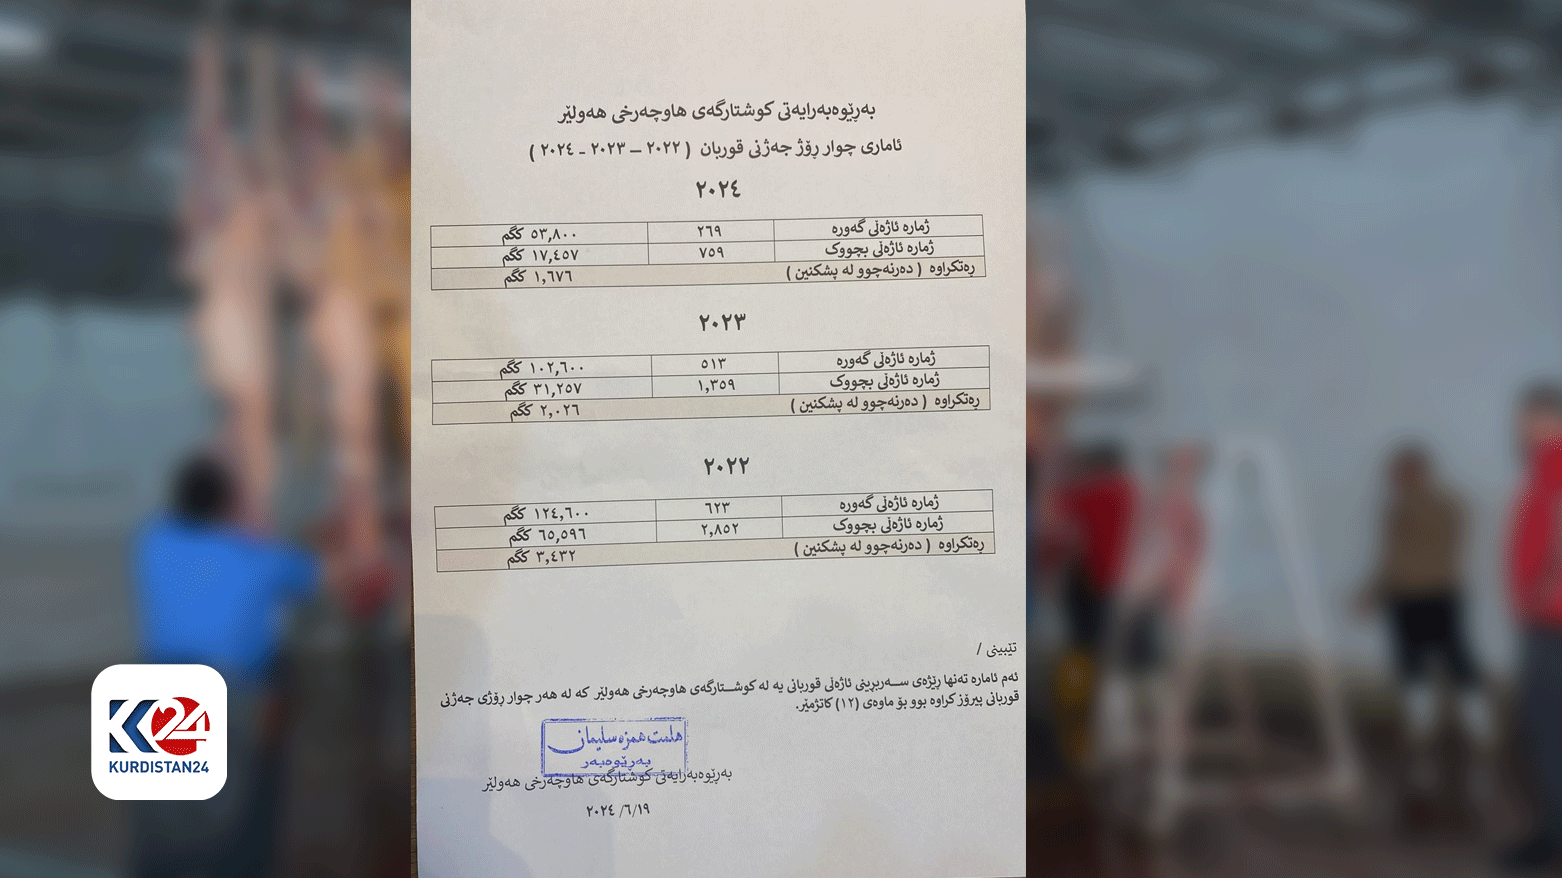 بەڕێوەبەرایەتی کوشتارگەی هاوچەرخی هەولێر
ئاماری چوار ڕۆژ جەژنی قوربان ( ٢٠٢٢ – ٢٠٢٣ - ٢٠٢٤ )
٢٠٢٤
ژمارە ئاژەڵی گەورە ٢٦٩ ٥٣,٨٠٠ کگم
ژمارە ئاژەڵی بچووک ٧٥٩ ١٧,٤٥٧ کگم
ڕەتکراوە ( دەرنەچوو لە پشکنین ) ١,٦٧٦ کگم
٢٠٢٣
ژمارە ئاژەڵی گەورە ٥١٣ ١٠٢,٦٠٠ کگم
ژمارە ئاژەڵی بچووک ١,٣٥٩ ٣١,٢٥٧ کگم
ڕەتکراوە ( دەرنەچوو لە پشکنین ) ٢,٠٢٦ کگم
٢٠٢٢
ژمارە ئاژەڵی گەورە ٦٢٣ ١٢٤,٦٠٠ کگم
ژمارە ئاژەڵی بچووک ٢,٨٥٢ ٦٥,٥٩٦ کگم
ڕەتکراوە ( دەرنەچوو لە پشکنین ) ٣,٤٣٢ کگم
تێبینی /
ئەم ئامارە تەنها ڕێژەی ســەربڕینی ئاژەڵی قوربانی یە لە کوشــتارگەی هاوچەرخی هەولێر کە لە هەر چوار ڕۆژی جەژنی
قوربانی پیرۆز کراوە بوو بۆ ماوەی (١٢) کاتژمێر.
هلمت حمزە سلیمان
بەڕێوەبەر
بەڕێوەبەرایەتی کوشتارگەی هاوچەرخی هەولێر
٢٠٢٤ /٦/١٩
K24
KURDISTAN24